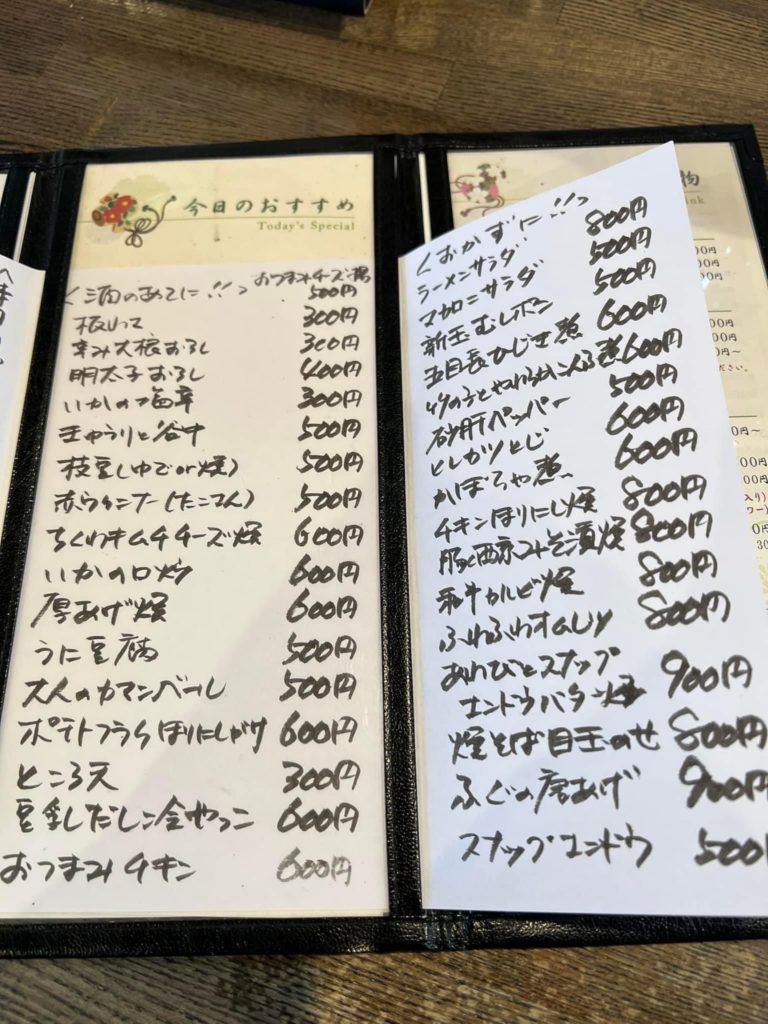 今日のおすすめ
Today's Special
おつまみチーズ揚
く酒のあてに!!> 500円
板わさ 300円
辛み大根おろし 300円
明太子おろし 400円
いかの塩辛 300円
きゅうりと谷中 500円
枝豆しゆでor焼) 500円
赤ウインナー(たこさん) 500円
ちくわキムチチーズ焼 600円
いかの口炒 600円
厚あげ焼 600円
うに豆腐 500円
大人のカマンベール 500円
ポテトフライほりにしがけ 600円
ところ天 300円
豆乳だしに冷やっこ 600円
おつまみチキン 600円
くおかずに!!>
ラーメンサラダ 800円
マカロニサラダ 500円
新玉むしポン 500円
五目長ひじき煮 600円
竹の子とやわらかにんぶ煮 600円
砂肝ペッパー 500円
ヒレカツとじ 600円
かぼちゃ煮 600円
チキンほりにし焼 800円
豚西京みそ漬焼 800円
和牛カルビ焼 800円
ふわふわオムレツ 800円
あわびとスナップ
エンドウバター焼 900円
焼そば目玉のせ 800円
ふぐの唐あげ 900円
スナップエンドウ 500
物
ink